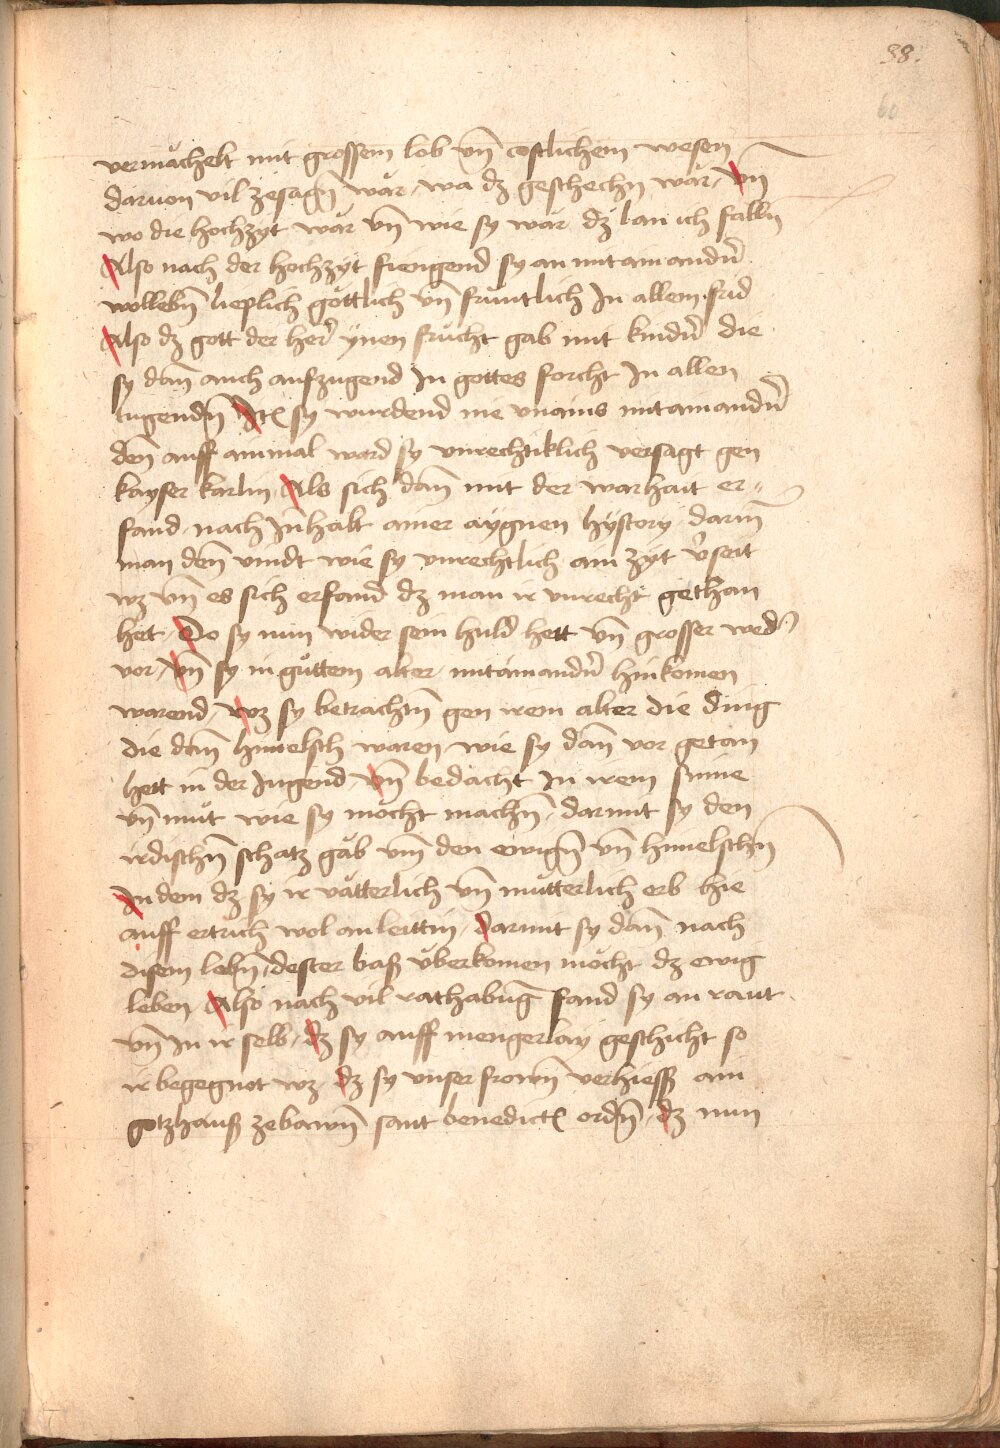 38.
60
vermächelt mit grossem lob vn̄ costlichem wesen
daruon vil zesagn̄ wär, wa dz geschechn̄ wär, vn̄
wo die hochzyt wär vn̄ wie sy wär dz lan ich falln̄
Also nach der hochzyt fiengend sy an mitainandr̄
wollebn̄ lieplich göttlich vn̄ früntlich In allem frid
Also dz gott der her̄ ynen frücht gab mit kindr̄ die
sy dan̄ auch aufzugend In gottes forcht In allen
tugendn̄ It̄ sy wurdend nie vnains mitainandr̄
den̄ auff ainmal ward sy vnrechtiklich versagt gen
kayser karlin, Als sich dan̄ mit der warhait er„
fand, nach In̄halt ainer aygnen hystory darin̄
man den̄ vindt wie sy vnrechtlich ain zyt v̄seit
wz vn̄ es sich erfand dz man ir vnrecht gethan
het, Do sy nun wider sein huld hett vn̄ grosser wed̄
vor, vn̄ sy in güttem alter, mitainandr̄ hinkomen
warend, wz sy betrachtn̄ gen irem alter die ding
die dan̄ himelsch waren, wie sy dan̄ vor getan
hett in der Jugend, vn̄ bedacht In irem sinne
vn̄ müt wie sy möcht machn̄, darmit sy den
irdischn̄ schatz gäb vm̄ den ewign̄ vn̄ himelschn̄
In dem dz sy ir vätterlich vn̄ mütterlich erb hie
auff ertrich wol anleittin, darmit sy dan̄ nach
disem lebn̄, dester baß überkomen möcht dz ewig
leben, Also nach vil rathabūg fand sy an raut
vn̄ In ir selb, dz sy auff mengerlay geschicht so
ir begegnot wz, dz sy vnser frown̄ verhiess ain
gotzhauß zebawn̄ sant benedict ordn̄, dz nun